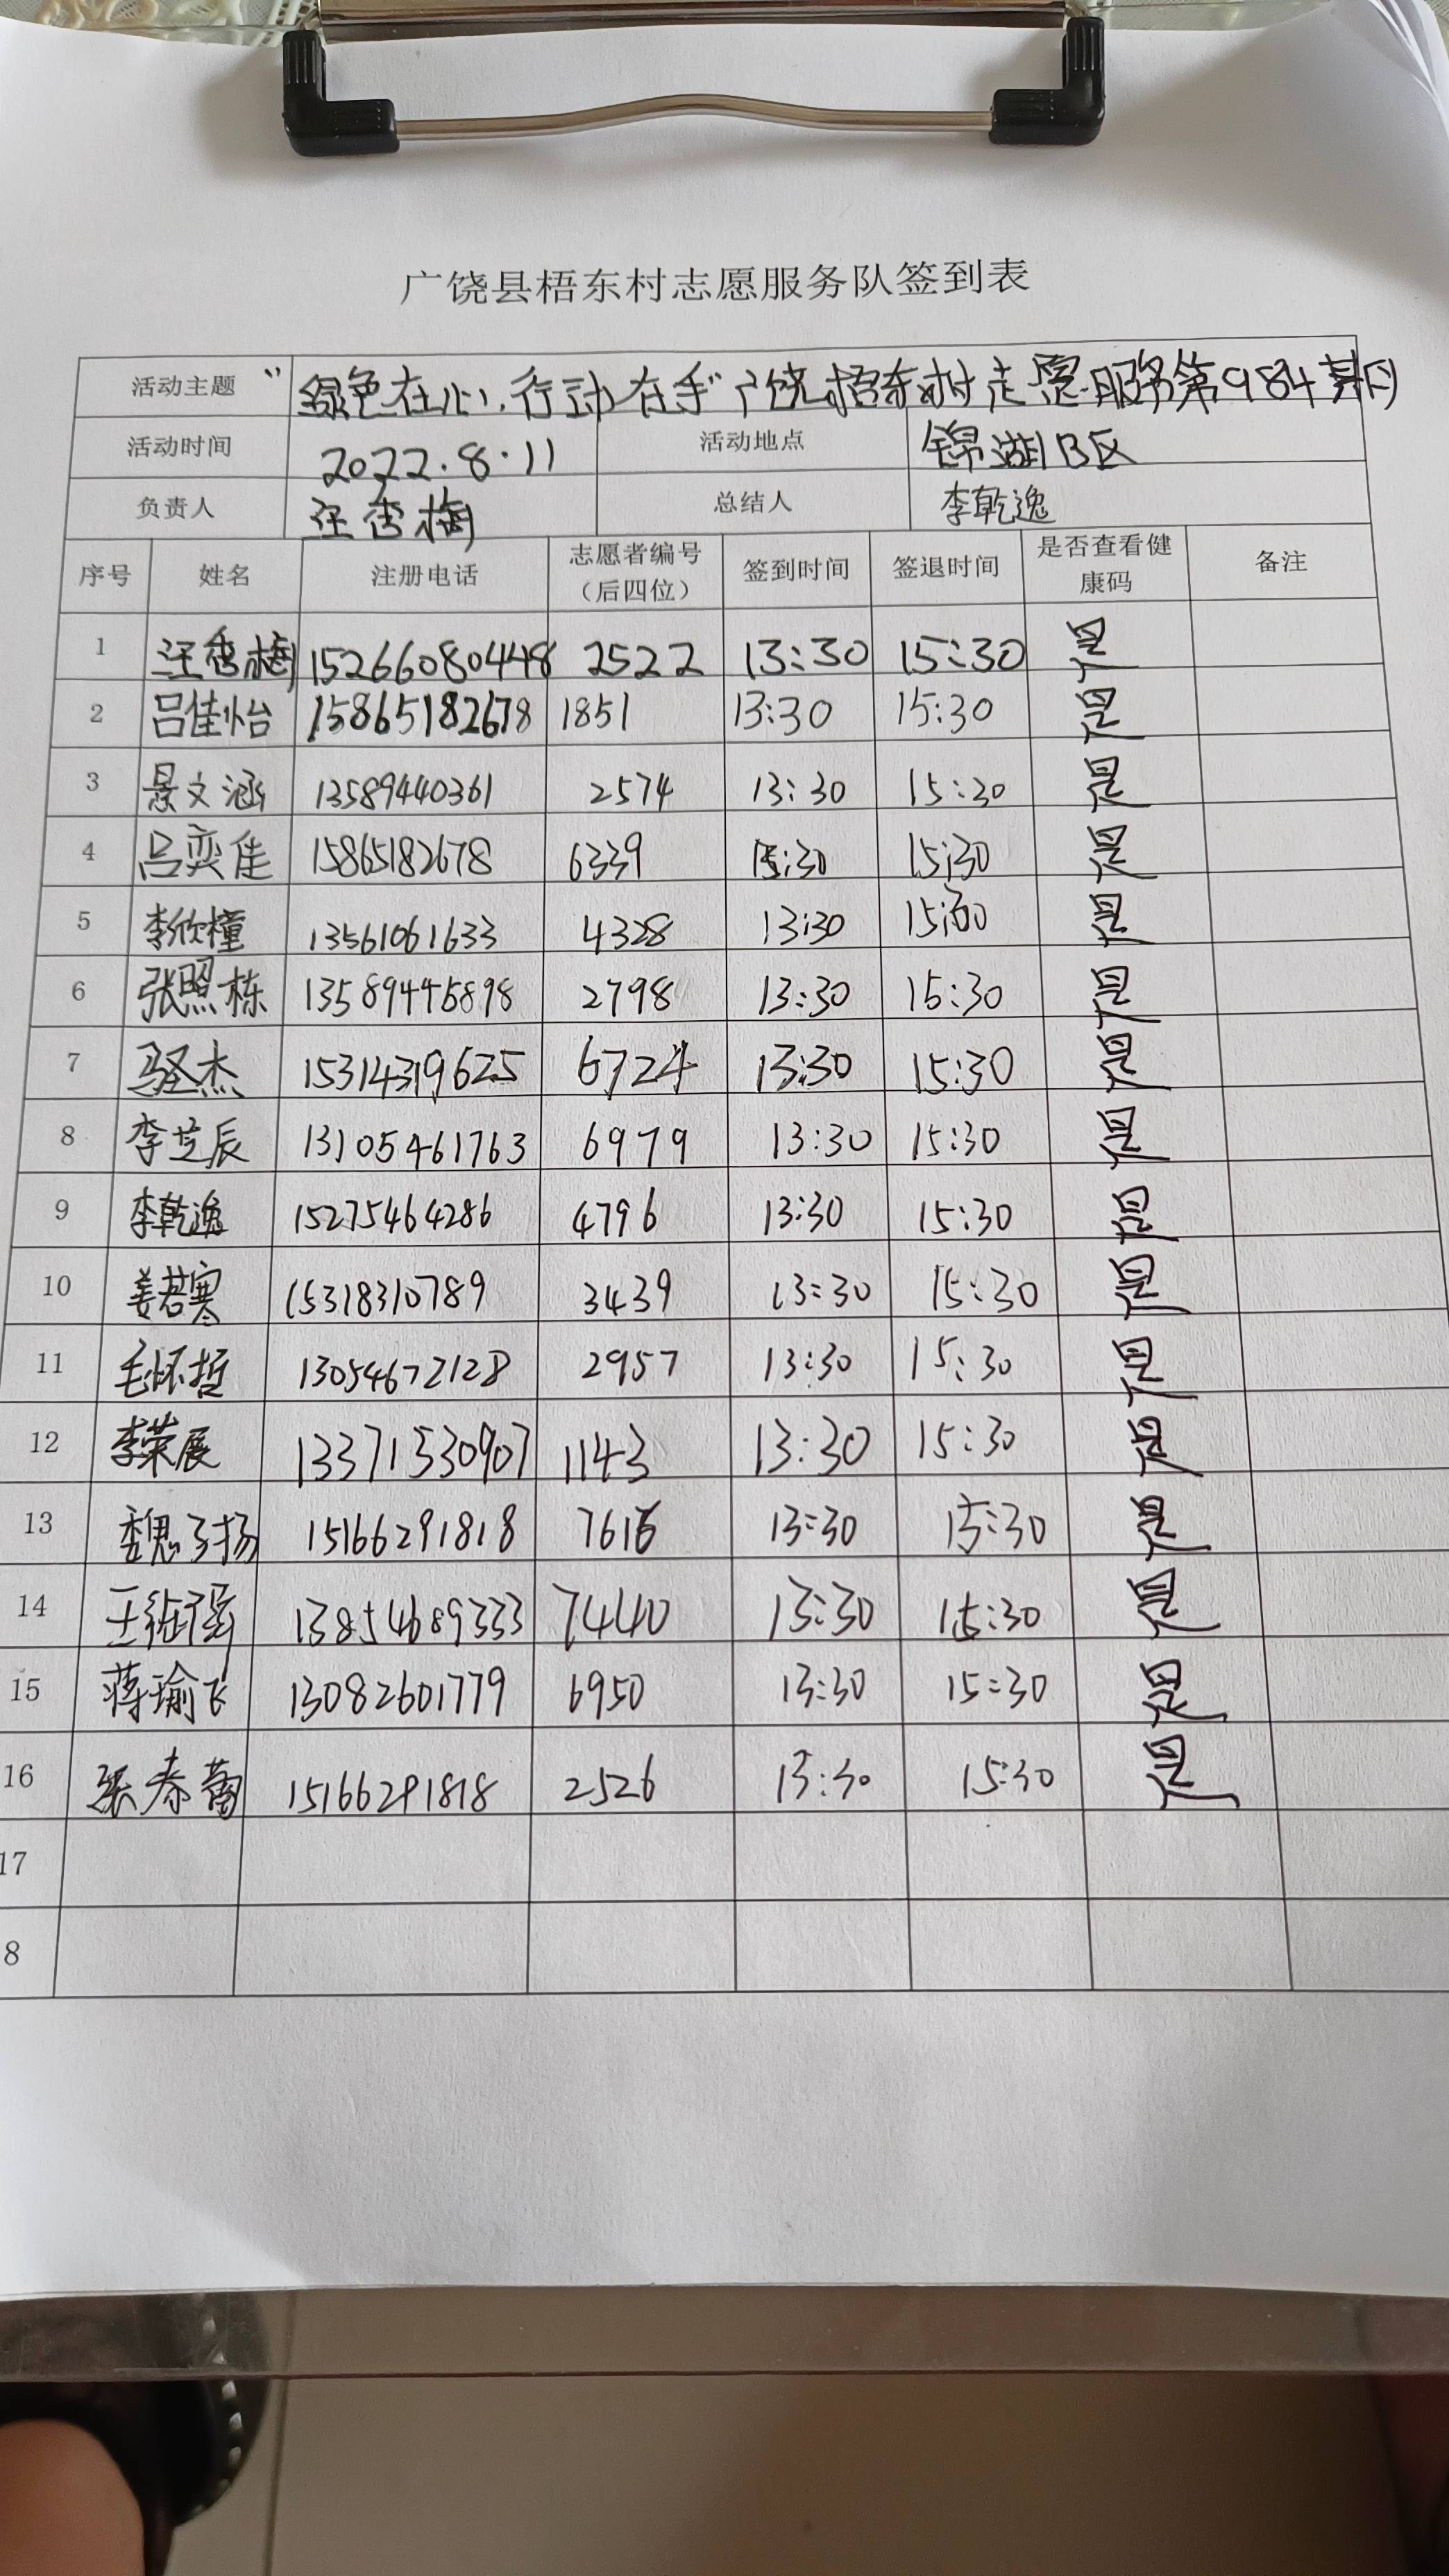 广饶县梧东村志愿服务队签到表
活动主题 "绿色在心,行动在手"广饶梧东村志愿服务第984期
活动时间 2022.8.11 活动地点 锦湖B区
负责人 汪香梅 总结人 李乾逸
序号 姓名 注册电话 志愿者编号（后四位） 签到时间 签退时间 是否查看健康码 备注
1 汪香梅 15266080448 2522 13:30 15:30 是
2 吕佳怡 15865182678 1851 13:30 15:30 是
3 景文涵 13589440361 2574 13:30 15:30 是
4 吕奕佳 15865182678 6339 15:30 是
5 李欣橦 13561061633 4328 13:30 是
6 张照栋 2798 13:30 15:30 是
7 圣杰 15314319625 6724 13:30 15:30 是
8 李芝辰 13105461763 6979 13:30 15:30 是
9 李乾逸 15275464286 4796 13:30 15:30 是
10 姜若寒 15318310789 3439 13:30 15:30 是
11 毛怀哲 13054672128 2957 13:30 15:30 是
12 李荣展 13371530907 1143 13:30 15:30 是
13 魏子扬 15166291818 13:30 15:30 是
14 王 13854689333 7440 13:30 15:30 是
15 蒋瑜飞 13082601779 6950 13:30 15:30 是
16 张春蕾 15166291818 2526 13:30 15:30 是
17
8